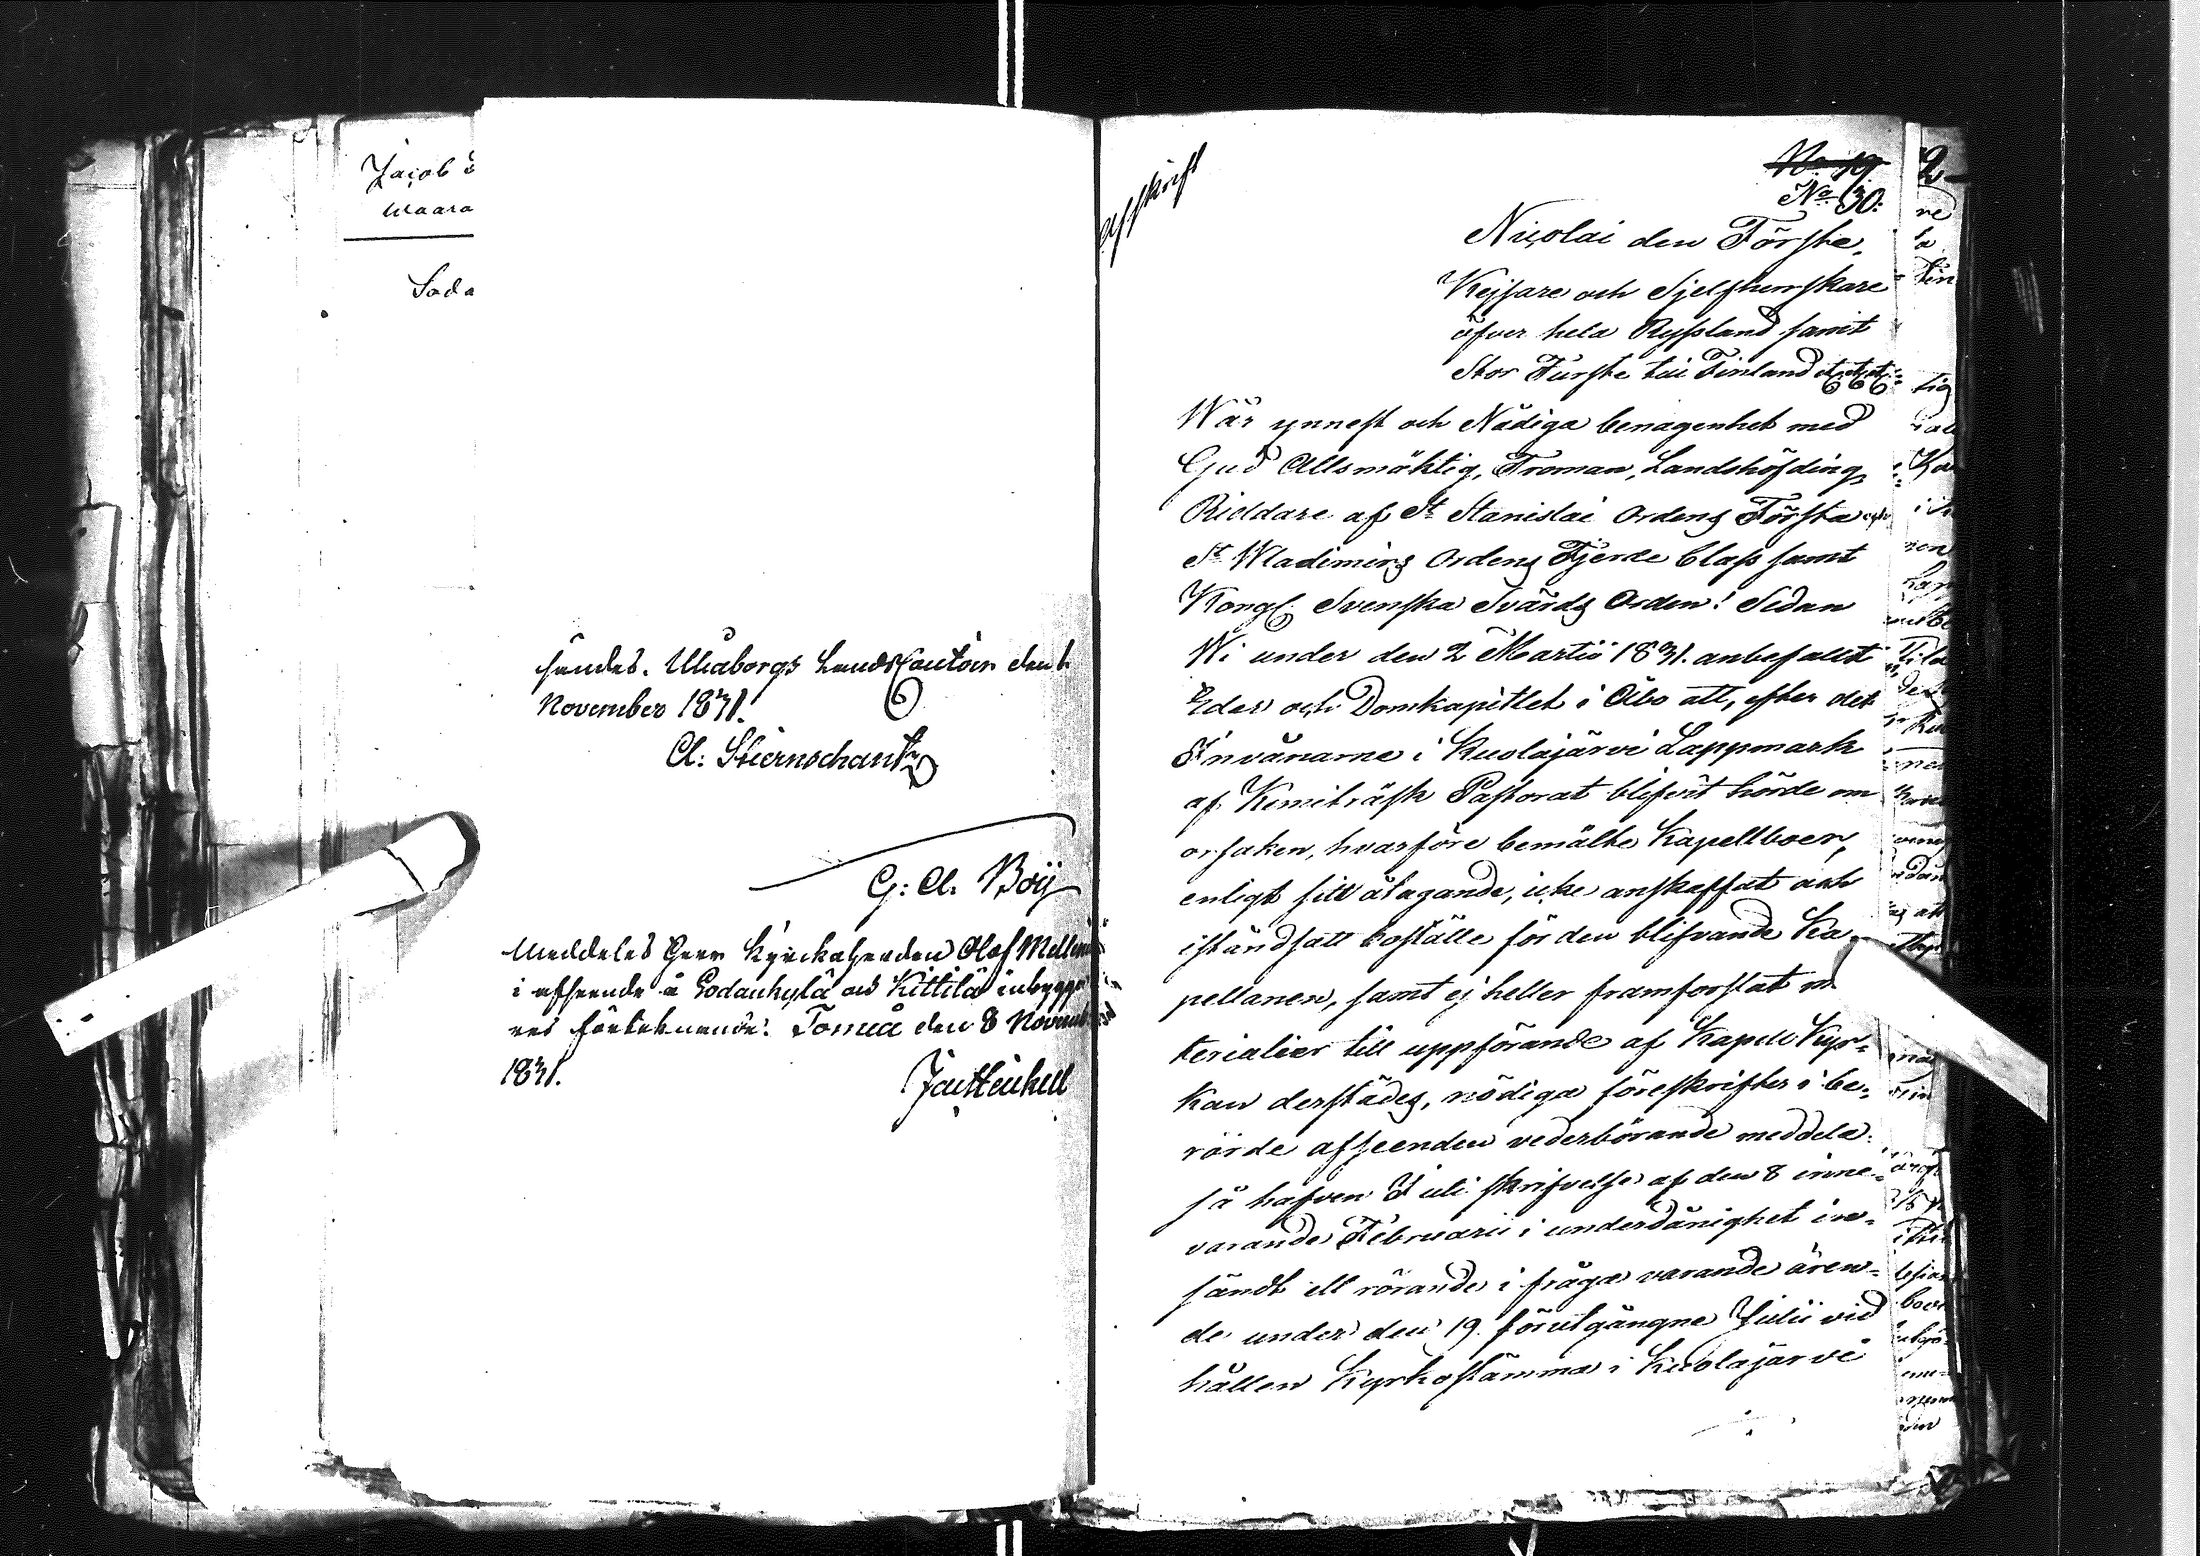 Jacob
waara
Soda
sändes. Uleåborgs LandsContoir den
November 1831.
Cl: Stiernschantz
G: A. Boij
Meddeles Herr Kyrckoherden Olof
i afseende å Sodankylä och Kittilä inbygga
res förtecknande. Torneå den 8 Novemb
1831.
Afskrift
No 19
No 30:
Nicolai den Förste,
Kejsare och Sjelfherrskare
öfver hela Ryssland samt
Stor Furste till Finland etc. etc. etc.
Wår ynnest och Nådiga benägenhet med
Gud Allsmäktig, Troman, Landshöfding,
Riddare af St Stanislai Ordens Första och
St Wladimirs Ordens Fjerde Class samt
Kongl. Svenska Svärds Orden! Sedan
Wi under den 2 Martii 1831. anbefallt
Eder och Domkapitlet i Åbo att, efter det
Invånarne i Kuolajärvi Lappmark
af Kemiträsk Pastorat blifvit hörde om
orsaken, hvarföre bemälte Kapellboer,
enligt sitt åtagande, icke anskaffat och
iståndsatt boställe för den blifvande Ka-
pellanen, samt ej heller framforslat ma
terialier till uppförande af Kapell Kyr-
kan derstädes, nödiga föreskrifter i be-
rörde afseenden vederbörande meddela:
så hafven I uti skrifvelse af den 8 inne-
varande Februarii i underdånighet in-
sändt ett rörande i fråga varande ären-
de under den 19. förutgångne Julii vid
hållen Kyrkostämma i Kuolajärvi
2